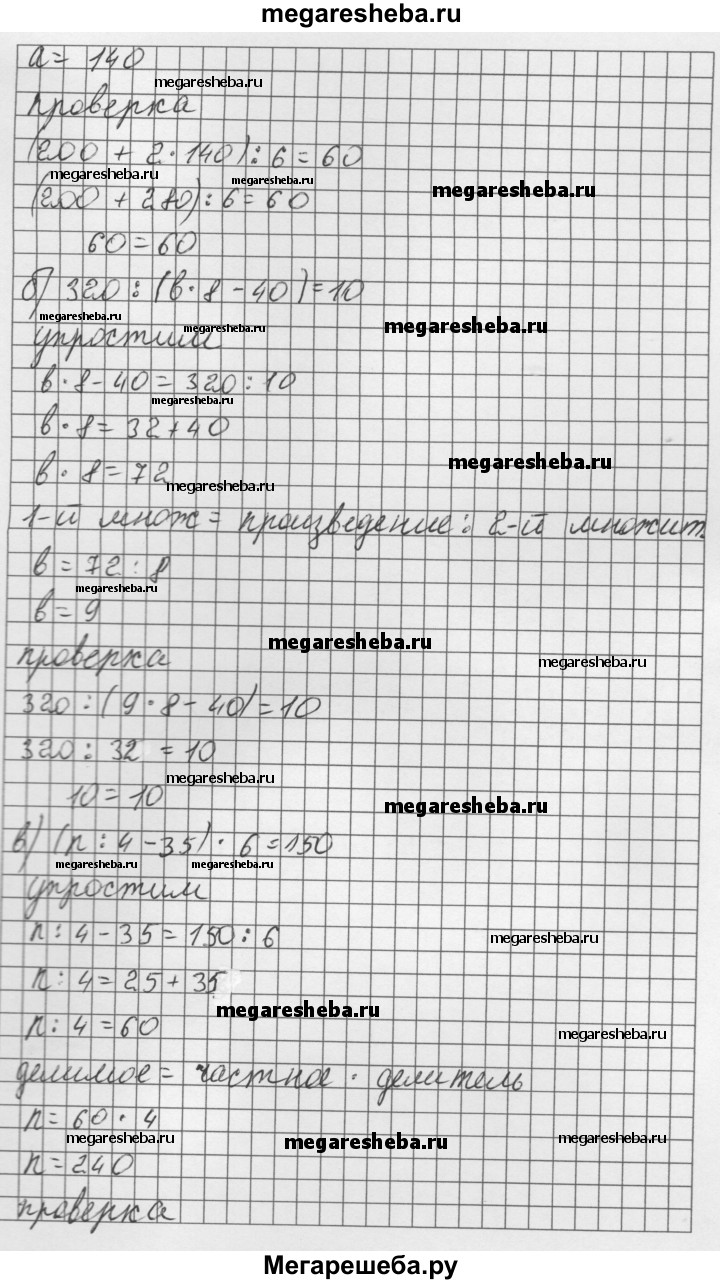 megaresheba.ru
a = 140
megaresheba.ru
проверка
(200 + 2 · 140) : 6 = 60
megaresheba.ru megaresheba.ru megaresheba.ru
(200 + 280) : 6 = 60
60 = 60
б) 320 : (в · 8 - 40) = 10
megaresheba.ru megaresheba.ru megaresheba.ru
упростим
в · 8 - 40 = 320 : 10
megaresheba.ru
в · 8 = 32 + 40
megaresheba.ru
в · 8 = 72
megaresheba.ru
1-й множ = произведение : 2-й множит.
в = 72 : 8
megaresheba.ru
в = 9
megaresheba.ru
проверка
megaresheba.ru
320 : (9 · 8 - 40) = 10
320 : 32 = 10
megaresheba.ru
10 = 10
megaresheba.ru
в) (n : 4 - 35) · 6 = 150
megaresheba.ru megaresheba.ru
упростим
n : 4 - 35 = 150 : 6
megaresheba.ru
n : 4 = 25 + 35
megaresheba.ru
n : 4 = 60
megaresheba.ru
делимое = частное · делитель
n = 60 · 4
megaresheba.ru megaresheba.ru megaresheba.ru
n = 240
проверка
Мегарешеба.ру